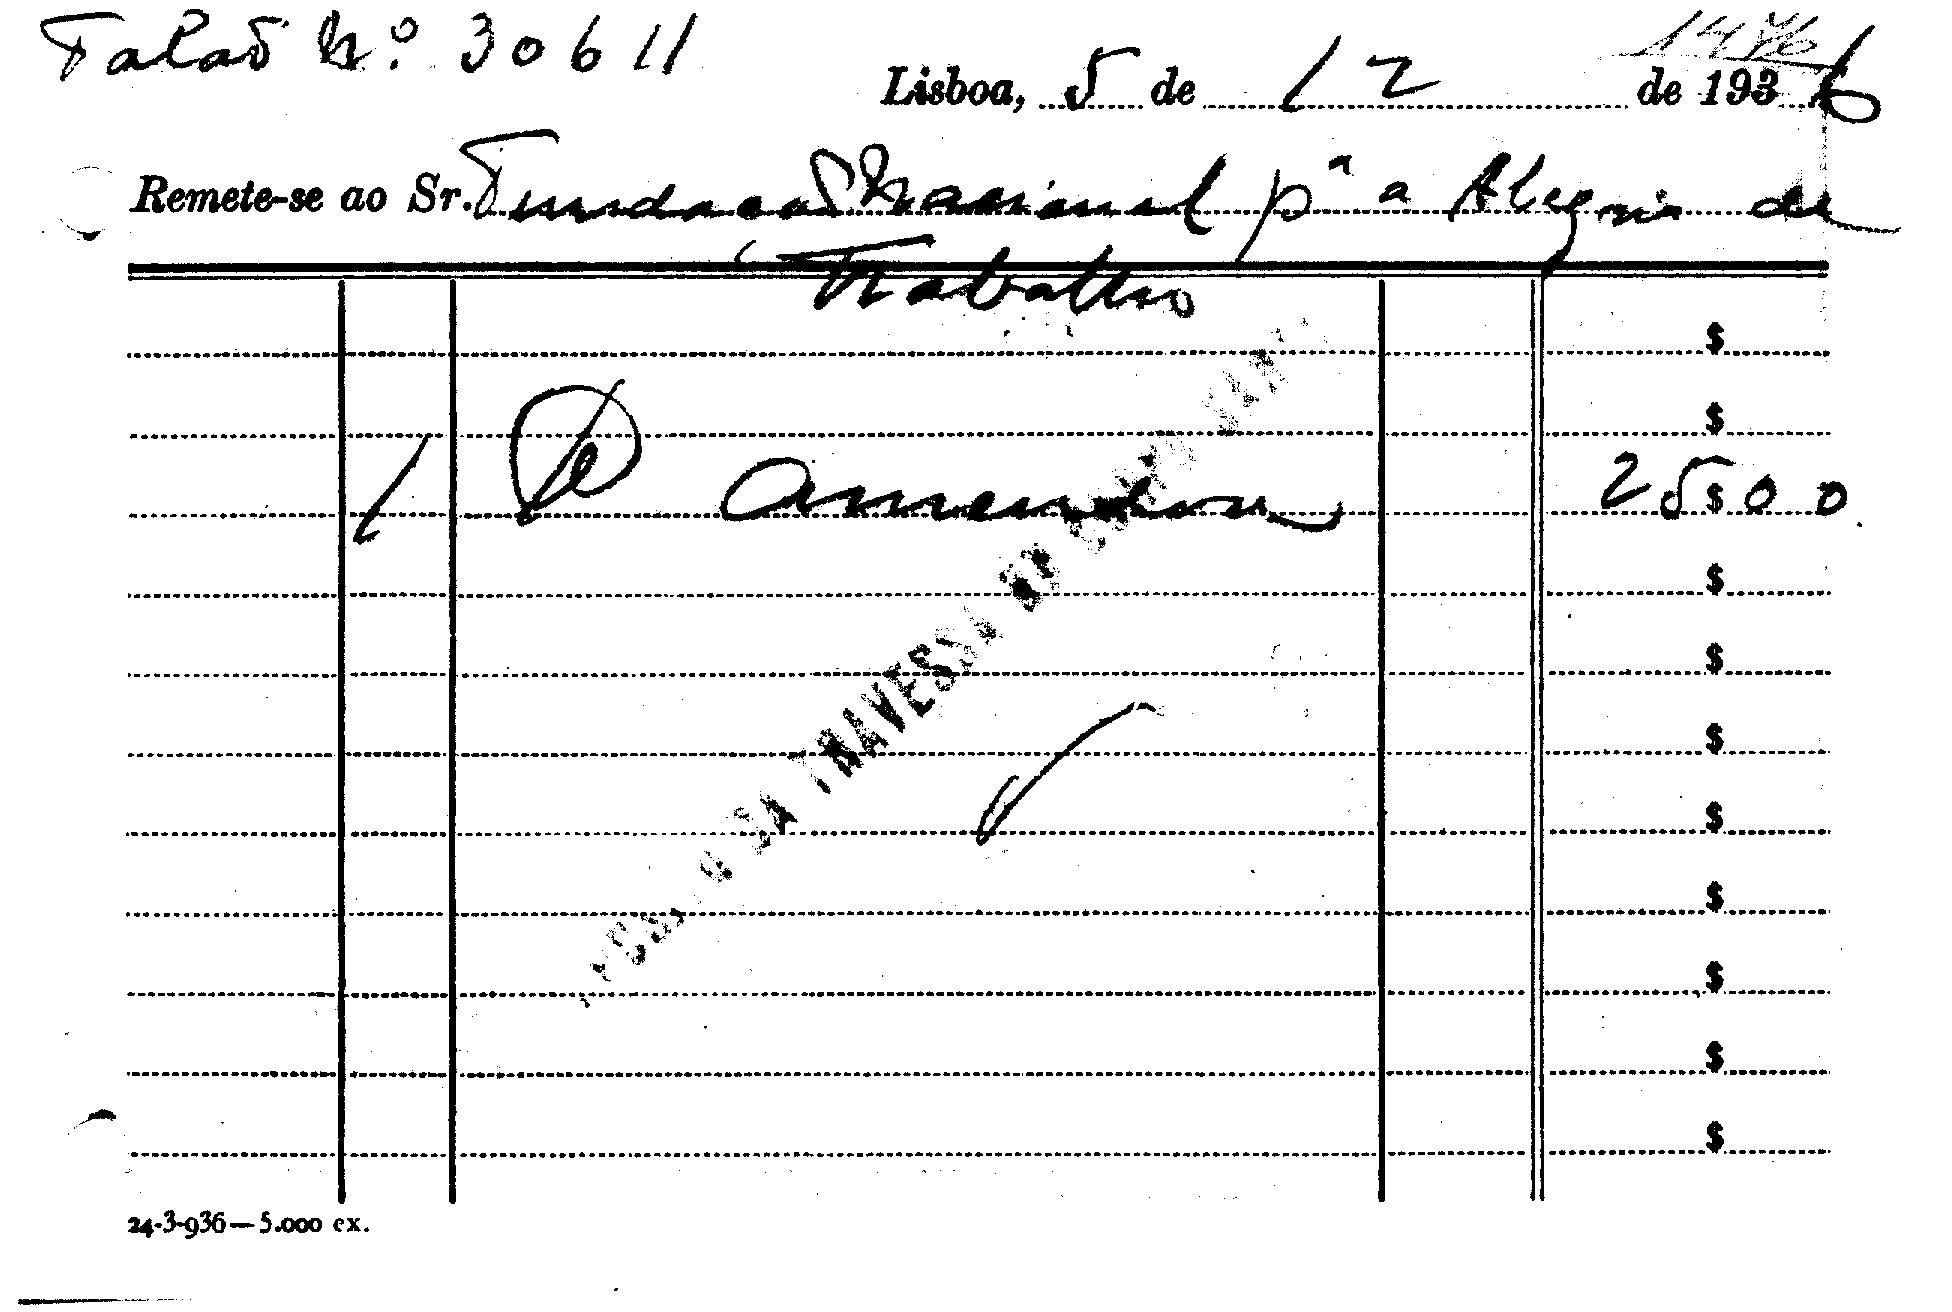 Talão N.º 30611
1476
Lisboa, 5 de 12 de 1936
Remete-se ao Sr. Fundação Nacional pª a Alegria do
Trabalho
$
$
1 25$00
$
$
$
$
$
$
$
$
DA TRAVESSA DE
24-3-936—5.000 ex.